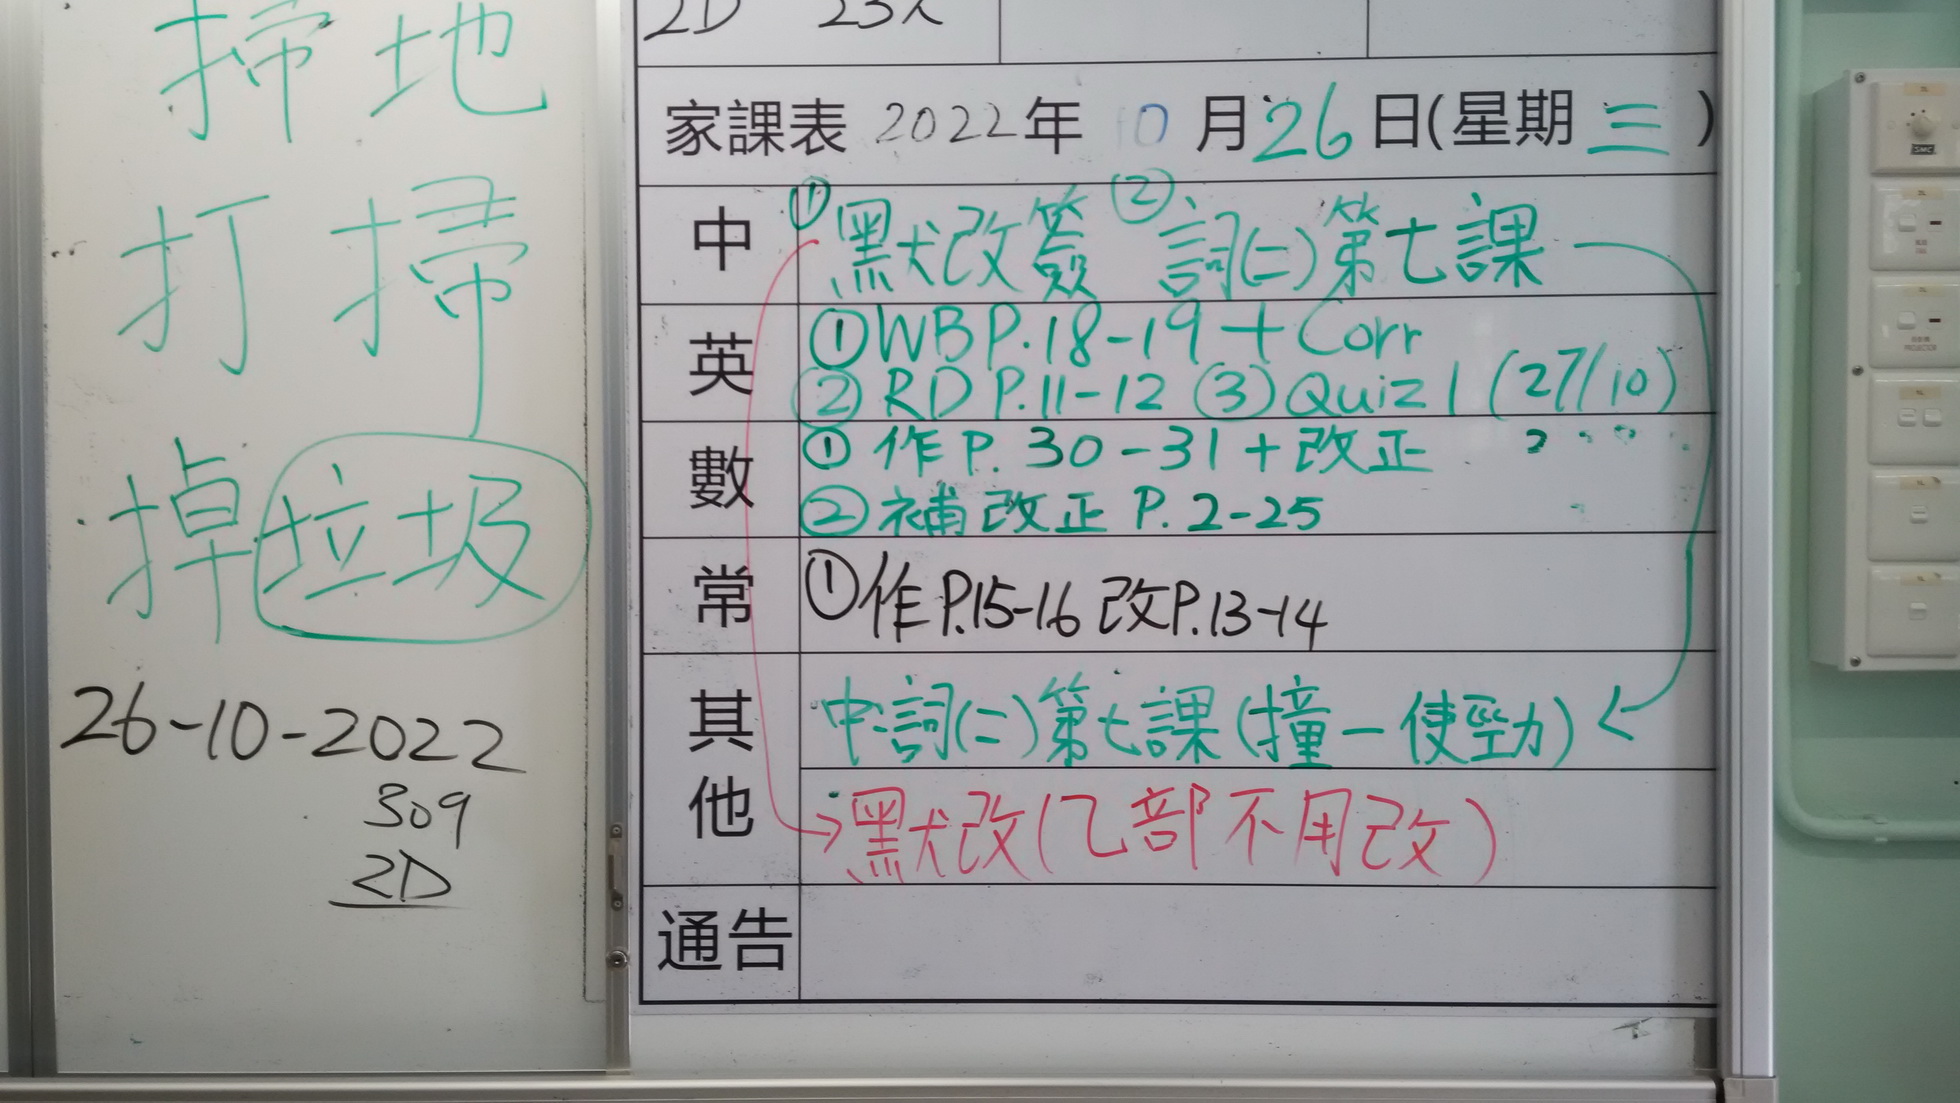 掃地
打掃
掉垃圾
26-10-2022
309
2D
2D 23人
家課表 2022年 10月26日(星期三)
中 ①默改簽 ②詞(二)第七課
英 ①WB P.18-19 + Corr
②RD P.11-12 ③Quiz 1 (27/10)
數 ①作 P. 30-31+改正
②補改正 P. 2-25
常 ①作P.15-16 改P.13-14
其他 中:詞(二)第七課(撞一使勁)
默改(乙部不用改)
通告